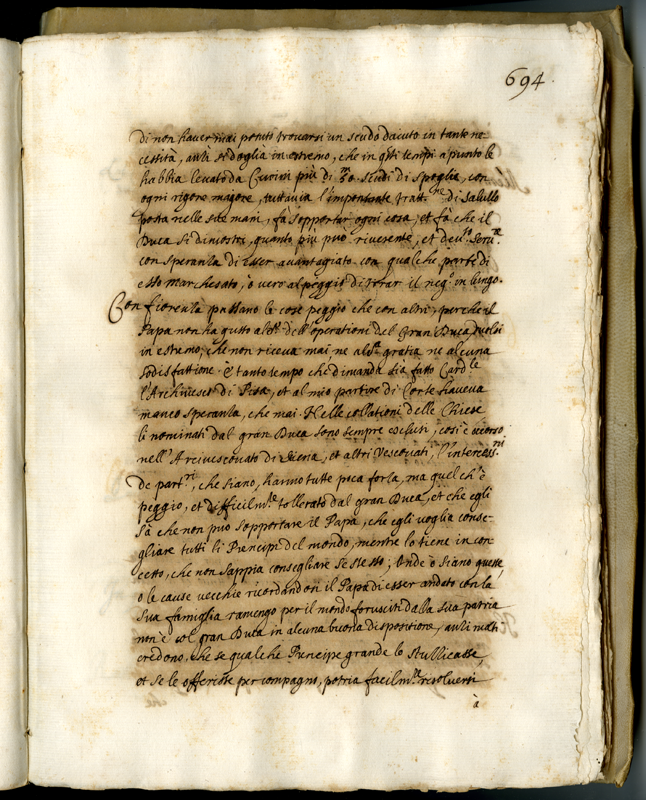 694
di non haver mai potuto trovarsi un scudo d'aiuto in tante ne=
cessità, anzi si doglia in estremo, che in q.sti tempi a punto le
habbia levato da Cavim più di scudi di spoglie, con
ogni rigore magiore, tuttavia l'importante tratt.ne di Saluzzo
posta nelle sue mani, fà sopportar ogni cosa, et fà che il
Duca si dimostri, quanto più può, riverente, et dev.to
con speranza di esser avantagiato con qualche parte di
esso marchesato, ò vero al peggio di tirar il neg.o in lungo.
Con fiorenza passano le cose peggio che con altri, perche il
Papa non ha gusto al.o dell'operationi del Gran Duca,
in estremo, che non riceva mai, ne al.a gratia ne alcuna
sodisfattione. è tanto tempo che dimanda sia fatto Card.le
l'Arcivesco di Pisa, et al mio partire di Corte haveva
manco speranza, che mai. Nelle collationi delle Chiese
li nominati dal gran Duca sono sempre esclusi, così è occorso
nell'Arcivescovato di Siena, et altri Vescovati, l'intercess.ni
de part.ri, che siano, hanno tutte poca forza, ma quel ch'è
peggio, et difficilm.te tollerato dal gran Duca, et che egli
sà che non può sopportare il Papa, che egli voglia conse=
gliare tutti li Prencipi del mondo, mentre lo tiene in con=
cetto, che non sappia consegliare se stesso; Onde ò siano queste,
o le cause vecchie ricordandosi il Papa di esser andato con la
sua famiglia ramengo per il mondo forusciti dalla sua patria
non è col gran Duca in alcuna buona dispositione, anzi molti
credono, che se qualche Prencipe grande lo stuzzicasse,
et se le offerisse per compagno, potria facilm.te risolversi
à